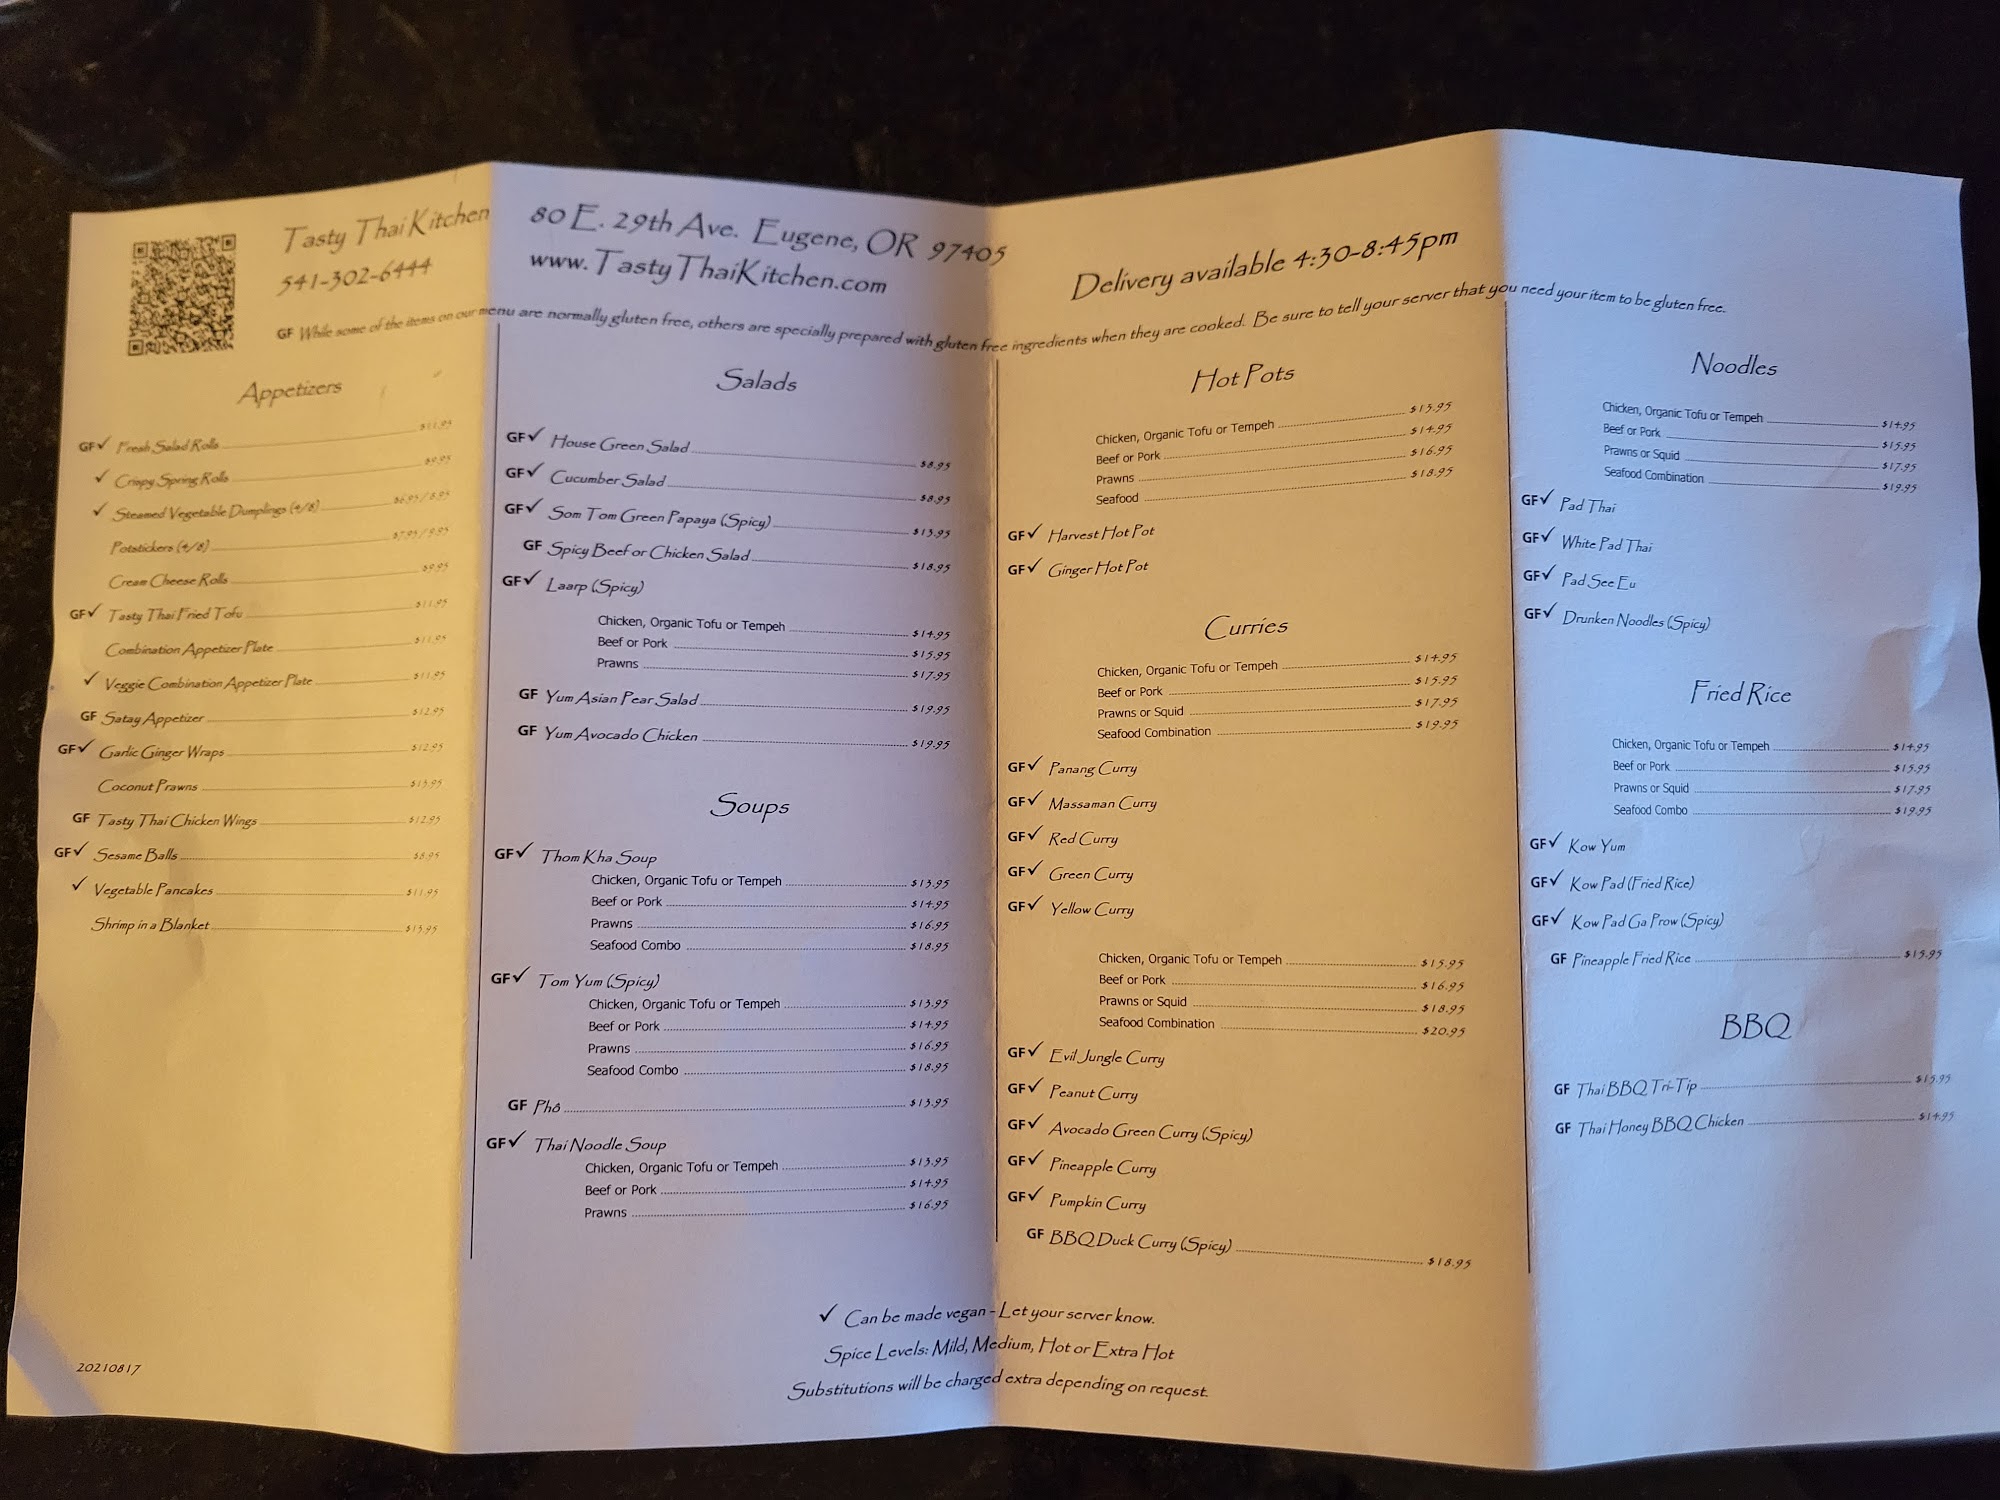 Tasty Thai Kitchen
541-302-6444
80 E. 29th Ave. Eugene, OR 97405
www.TastyThaiKitchen.com
Delivery available 4:30-8:45pm
GF While some of the items on our menu are normally gluten free, others are specially prepared with gluten free ingredients when they are cooked. Be sure to tell your server that you need your item to be gluten free.
Appetizers
GF✓ Fresh Salad Rolls $11.95
✓ Crispy Spring Rolls $9.95
✓ Steamed Vegetable Dumplings (4/8) $6.95/8.95
Potstickers (4/8) $7.95/9.95
Cream Cheese Rolls $9.95
GF✓ Tasty Thai Fried Tofu $11.95
Combination Appetizer Plate $11.95
✓ Veggie Combination Appetizer Plate $11.95
GF Satay Appetizer $12.95
GF✓ Garlic Ginger Wraps $12.95
Coconut Prawns $13.95
GF Tasty Thai Chicken Wings $12.95
GF✓ Sesame Balls $8.95
✓ Vegetable Pancakes $11.95
Shrimp in a Blanket $13.95
20210817
Salads
GF✓ House Green Salad $8.95
GF✓ Cucumber Salad $8.95
GF✓ Som Tom Green Papaya (Spicy) $13.95
GF Spicy Beef or Chicken Salad $18.95
GF✓ Laarp (Spicy)
Chicken, Organic Tofu or Tempeh $14.95
Beef or Pork $15.95
Prawns $17.95
GF Yum Asian Pear Salad $19.95
GF Yum Avocado Chicken $19.95
Soups
GF✓ Thom Kha Soup
Chicken, Organic Tofu or Tempeh $13.95
Beef or Pork $14.95
Prawns $16.95
Seafood Combo $18.95
GF✓ Tom Yum (Spicy)
Chicken, Organic Tofu or Tempeh $13.95
Beef or Pork $14.95
Prawns $16.95
Seafood Combo $18.95
GF Phô $13.95
GF✓ Thai Noodle Soup
Chicken, Organic Tofu or Tempeh $13.95
Beef or Pork $14.95
Prawns $16.95
Hot Pots
Chicken, Organic Tofu or Tempeh $13.95
Beef or Pork $14.95
Prawns $16.95
Seafood $18.95
GF✓ Harvest Hot Pot
GF✓ Ginger Hot Pot
Curries
Chicken, Organic Tofu or Tempeh $14.95
Beef or Pork $15.95
Prawns or Squid $17.95
Seafood Combination $19.95
GF✓ Panang Curry
GF✓ Massaman Curry
GF✓ Red Curry
GF✓ Green Curry
GF✓ Yellow Curry
Chicken, Organic Tofu or Tempeh $15.95
Beef or Pork $16.95
Prawns or Squid $18.95
Seafood Combination $20.95
GF✓ Evil Jungle Curry
GF✓ Peanut Curry
GF✓ Avocado Green Curry (Spicy)
GF✓ Pineapple Curry
GF✓ Pumpkin Curry
GF BBQ Duck Curry (Spicy) $18.95
Noodles
Chicken, Organic Tofu or Tempeh $14.95
Beef or Pork $15.95
Prawns or Squid $17.95
Seafood Combination $19.95
GF✓ Pad Thai
GF✓ White Pad Thai
GF✓ Pad See Eu
GF✓ Drunken Noodles (Spicy)
Fried Rice
Chicken, Organic Tofu or Tempeh $14.95
Beef or Pork $15.95
Prawns or Squid $17.95
Seafood Combo $19.95
GF✓ Kow Yum
GF✓ Kow Pad (Fried Rice)
GF✓ Kow Pad Ga Prow (Spicy)
GF Pineapple Fried Rice $15.95
BBQ
GF Thai BBQ Tri-Tip $15.95
GF Thai Honey BBQ Chicken $14.95
✓ Can be made vegan - Let your server know.
Spice Levels: Mild, Medium, Hot or Extra Hot
Substitutions will be charged extra depending on request.